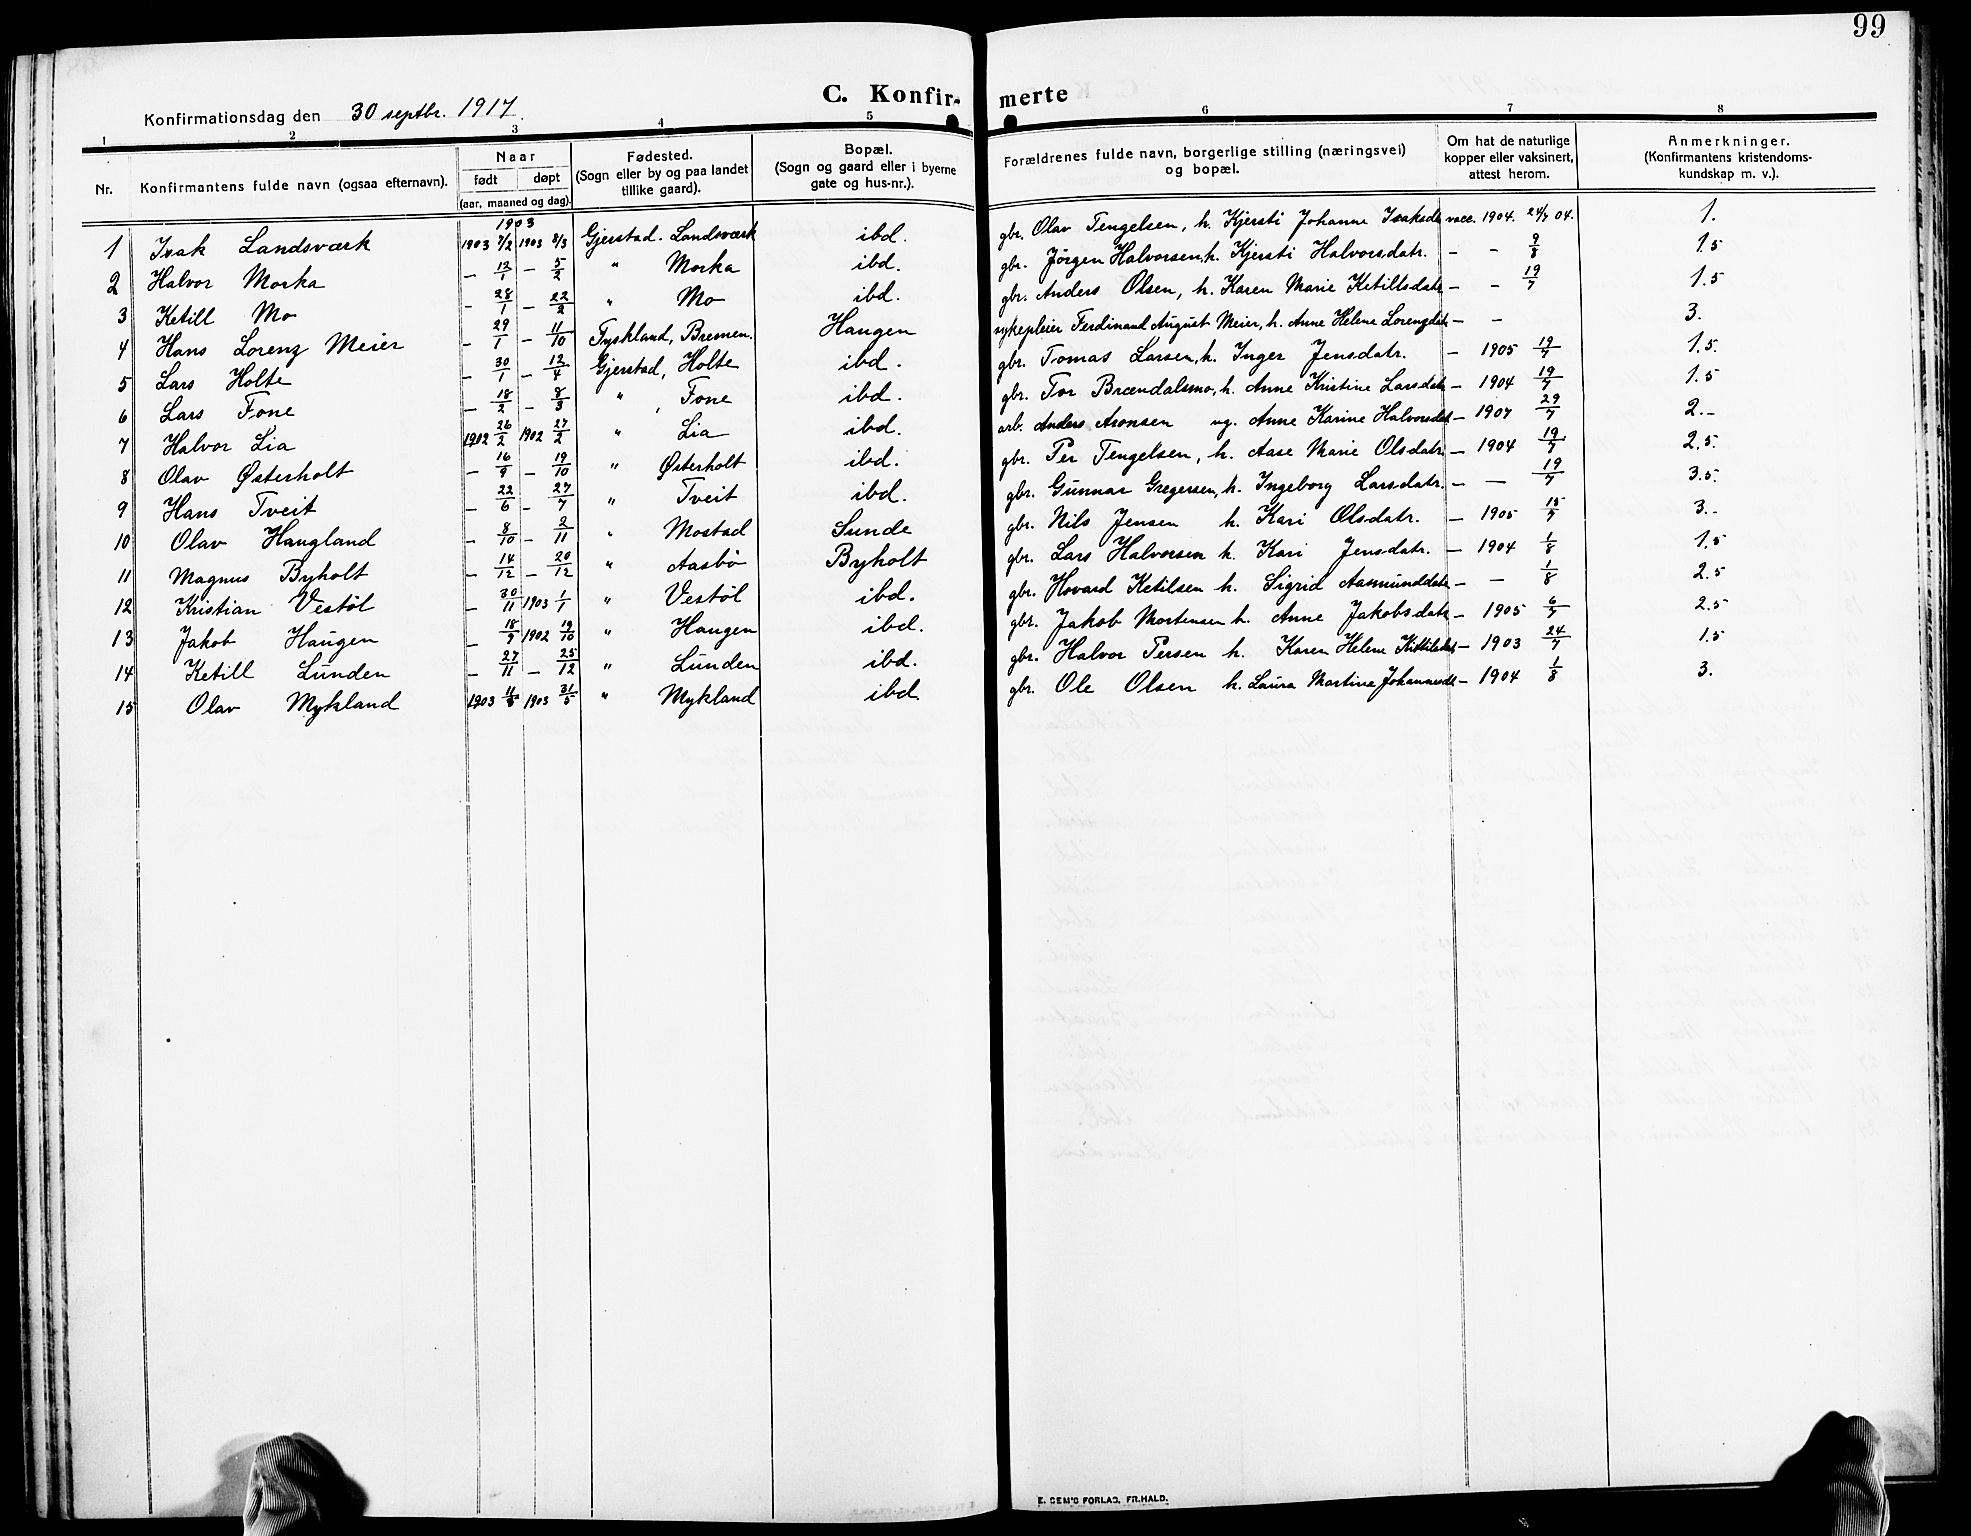 99
C. Konfir- merte
Konfirmationsdag den 30 septbr. 1917.
1 2 3 4 5 6 7 8
Nr. Konfirmantens fulde navn (ogsaa efternavn). Naar født døpt (aar, maaned og dag). Fødested. (Sogn eller by og paa landet tillike gaard). Bopæl. (Sogn og gaard eller i byerne gate og hus-nr.). Forældrenes fulde navn, borgerlige stilling (næringsvei) og bopæl. Om hat de naturlige kopper eller vaksinert, attest herom. Anmerkninger. (Konfirmantens kristendoms-kundskap m. v.).
1903
1 Isak Landsværk 1903 7/2 1903 8/3 Gjerstad. Landsværk ibd. gbr. Olav Tengelsen, h. Kjersti Johanne Isaksd. vacc. 1904. 24/7 04. 1.
2 Halvor Morka – 12/1 – 5/2 " Morka ibd. gbr. Jörgen Halvorsen, h. Kjersti Halvorsdatr. – – 9/8 1.5
3 Ketill Mo – 28/1 – 22/2 " Mo ibd. gbr. Anders Olsen, h. Karen Marie Ketillsdatr – – 19/7 1.5
4 Hans Lorenz Meier – 29/1 – 11/10 Tyskland, Bremen. Haugen sykepleier Ferdinand August Meier, h. Anne Helene Lorenzdatr – – 3.
5 Lars Holte – 30/1 – 12/4 Gjerstad, Holte ibd. gbr. Tomas Larsen, h. Inger Jensdatr. – 1905 19/7 1.5.
6 Lars Fone – 18/2 – 8/3 " Fone ibd. gbr. Tor Brændalsmo, h. Anne Kristine Larsdatr – 1904 19/7 1.5
7 Halvor Lia 1902 26/2 1902 27/2 " Lia ibd. arb. Anders Aronsen ug. Anne Karine Halvorsdat – 1907 29/7 2.-
8 Olav Østerholt – 16/9 – 19/10 " Østerholt ibd. gbr. Per Tengelsen, h. Aase Marie Olsdatr. – 1904 19/7 2.5.
9 Hans Tveit – 22/6 – 27/7 " Tveit ibd. gbr. Gunnar Gregersen, h. Ingeborg Larsdatr. – – 19/7 3.5.
10 Olav Haugland – 8/10 – 2/11 " Mostad Sunde gbr. Nils Jensen h. Kari Olsdatr. – 1905 15/7 3.-
11 Magnus Byholt – 14/12 – 20/12 " Aasbø Byholt gbr. Lars Halvorsen h. Kari Jensdatr. – 1904 1/8 1.5
12 Kristian Vestöl – 30/11 1903 1/1 " Vestöl ibd. gbr. Hovard Ketilsen h. Sigrid Aasmunddatr – – 1/8 2.5
13 Jakob Haugen – 18/9 1902 19/10 " Haugen ibd. gbr. Jakob Mortensen h. Anne Jakobsdatr – 1905 6/7 2.5
14 Ketill Lunden – 27/11 – 25/12 " Lunden ibd. gbr. Halvor Persen h. Karen Helene – 1903 24/7 1.5
15 Olav Mykland 1903 1903 31/5 " Mykland ibd. gbr. Ole Olsen h. Laura Martine Johannesd. – 1904 1/8 3.
E. SEM'S FORLAG, FR.HALD.